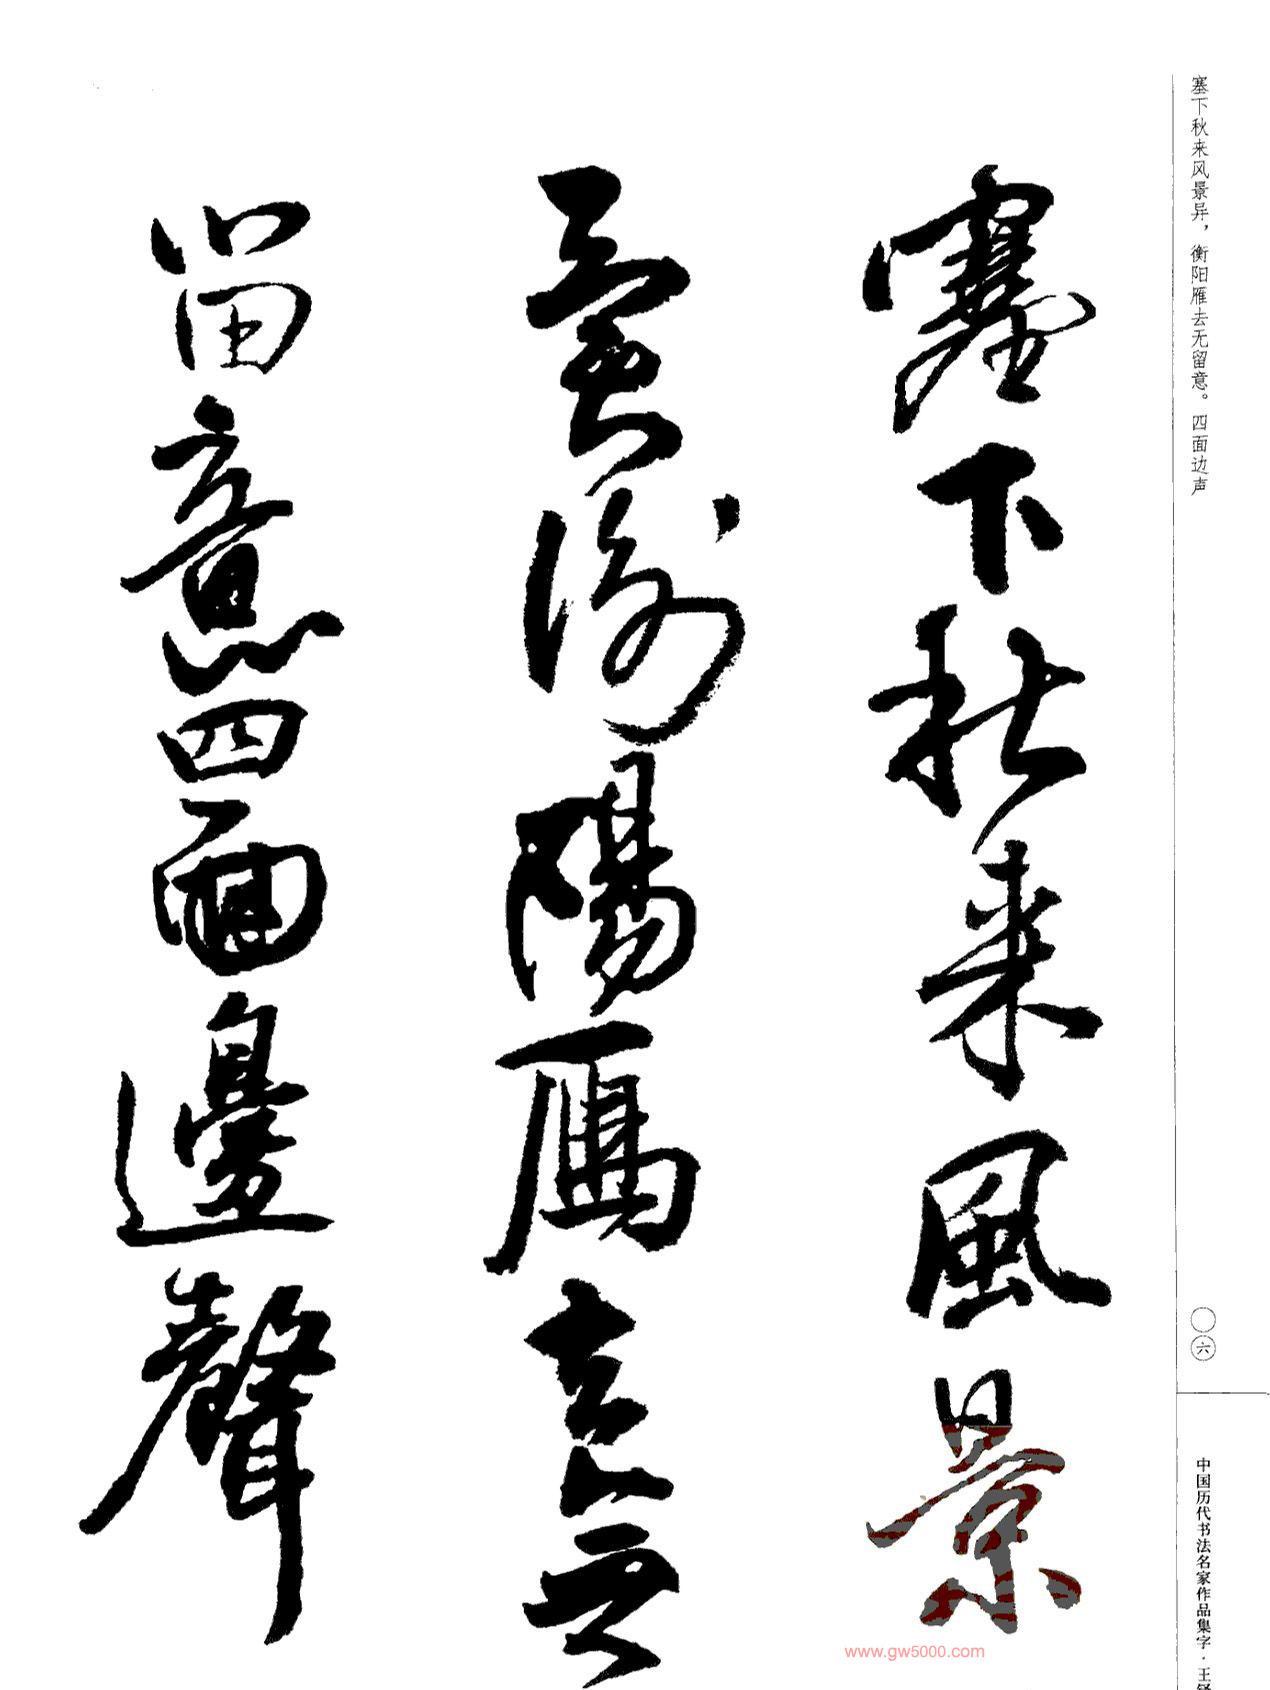 塞下秋来风景异，衡阳雁去无留意。四面边声
塞下秋来風景
異衡陽雁去無
留意四面邊聲
〇六
中国历代书法名家作品集字·王铎
www.gw5000.com